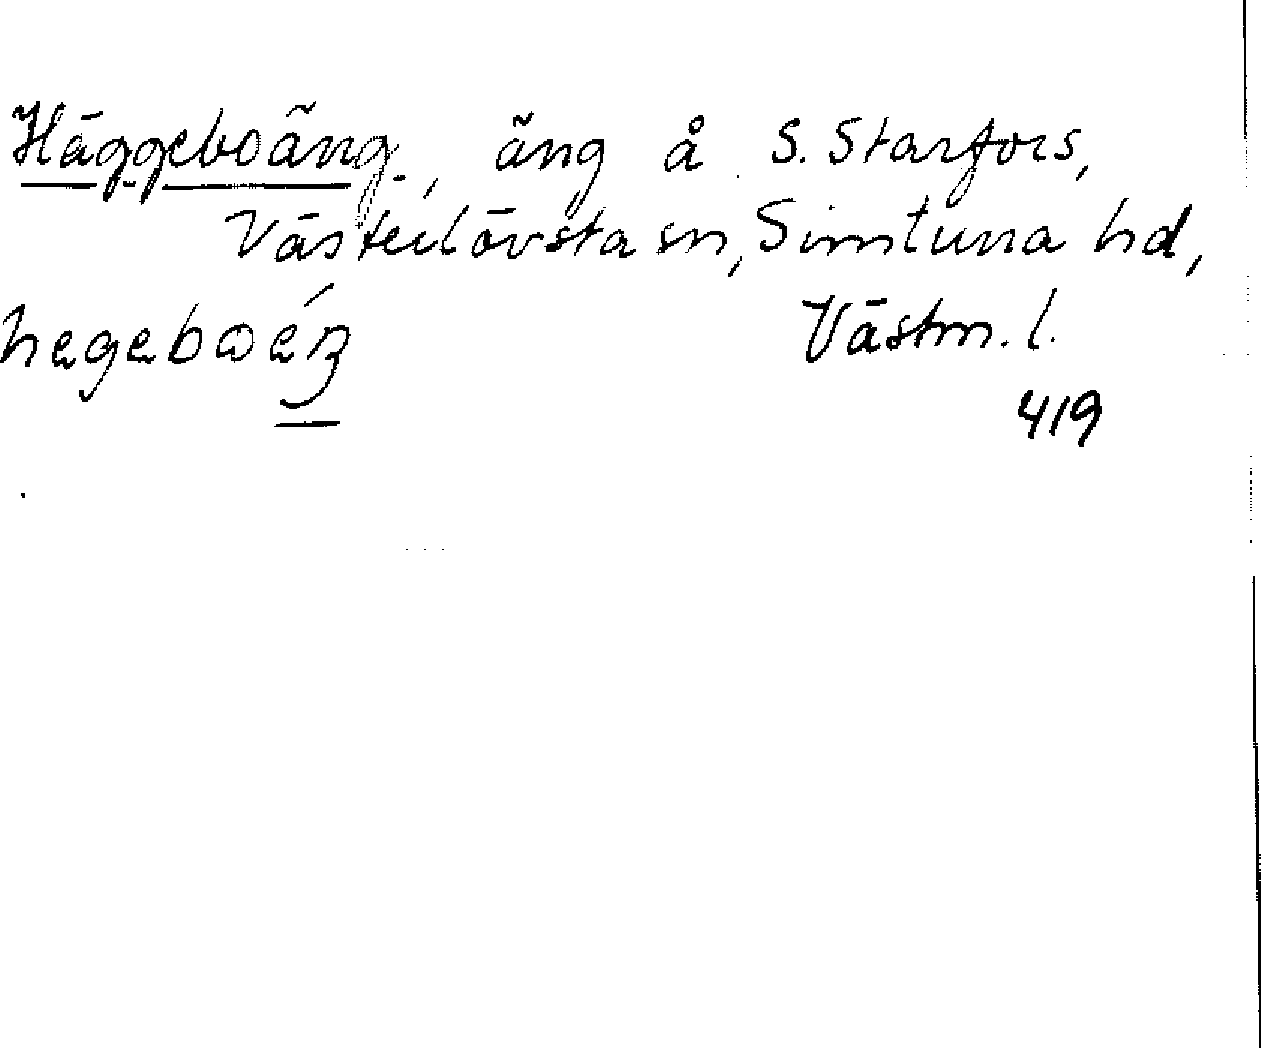 Häggeboäng, äng å S. Starfors,
Västerlövsta sn, Simtuna hd,
Västm. l.
419